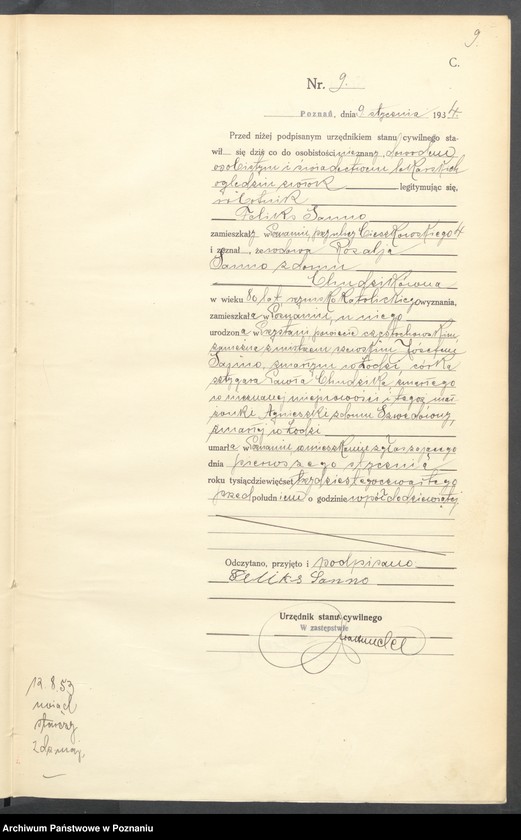 9.
C.
Nr. 9.
Poznań, dnia 9 stycznia 1934.
Przed niżej podpisanym urzędnikiem stanu cywilnego sta-
wił się dziś co do osobistości nieznany, dowodem
osobistym i świadectwem lekarskich
oględzin zwłok legitymując się,
robotnik
Feliks Sanno
zamieszkały w Poznaniu przy ulicy Cieszkowskiego 4
i zeznał, że wdowa Rozalja
Sanno z domu
Chudzikówna
w wieku 80 lat, rzymsko katolickiego wyznania,
zamieszkała w Poznaniu, u niego
urodzona w powiecie częstochowskim,
zamężna z mistrzem szewskim Józefem
Sanno, zmarłym w Łodzi córka
sztygara Pawła Chudzika zmarłego
w nieznanej miejscowości i tegoż mał
żonki Agnieszki z domu
zmarłej w Łodzi
umarła w Poznaniu w mieszkaniu zgłaszającego
dnia pierwszego stycznia
roku tysiącdziewięćset trzydziestego czwartego
przed południem o godzinie wpół do dziewiątej
Odczytano, przyjęto i podpisano
Feliks Sanno
Urzędnik stanu cywilnego
W zastępstwie
12.8.53
Archiwum Państwowe w Poznaniu